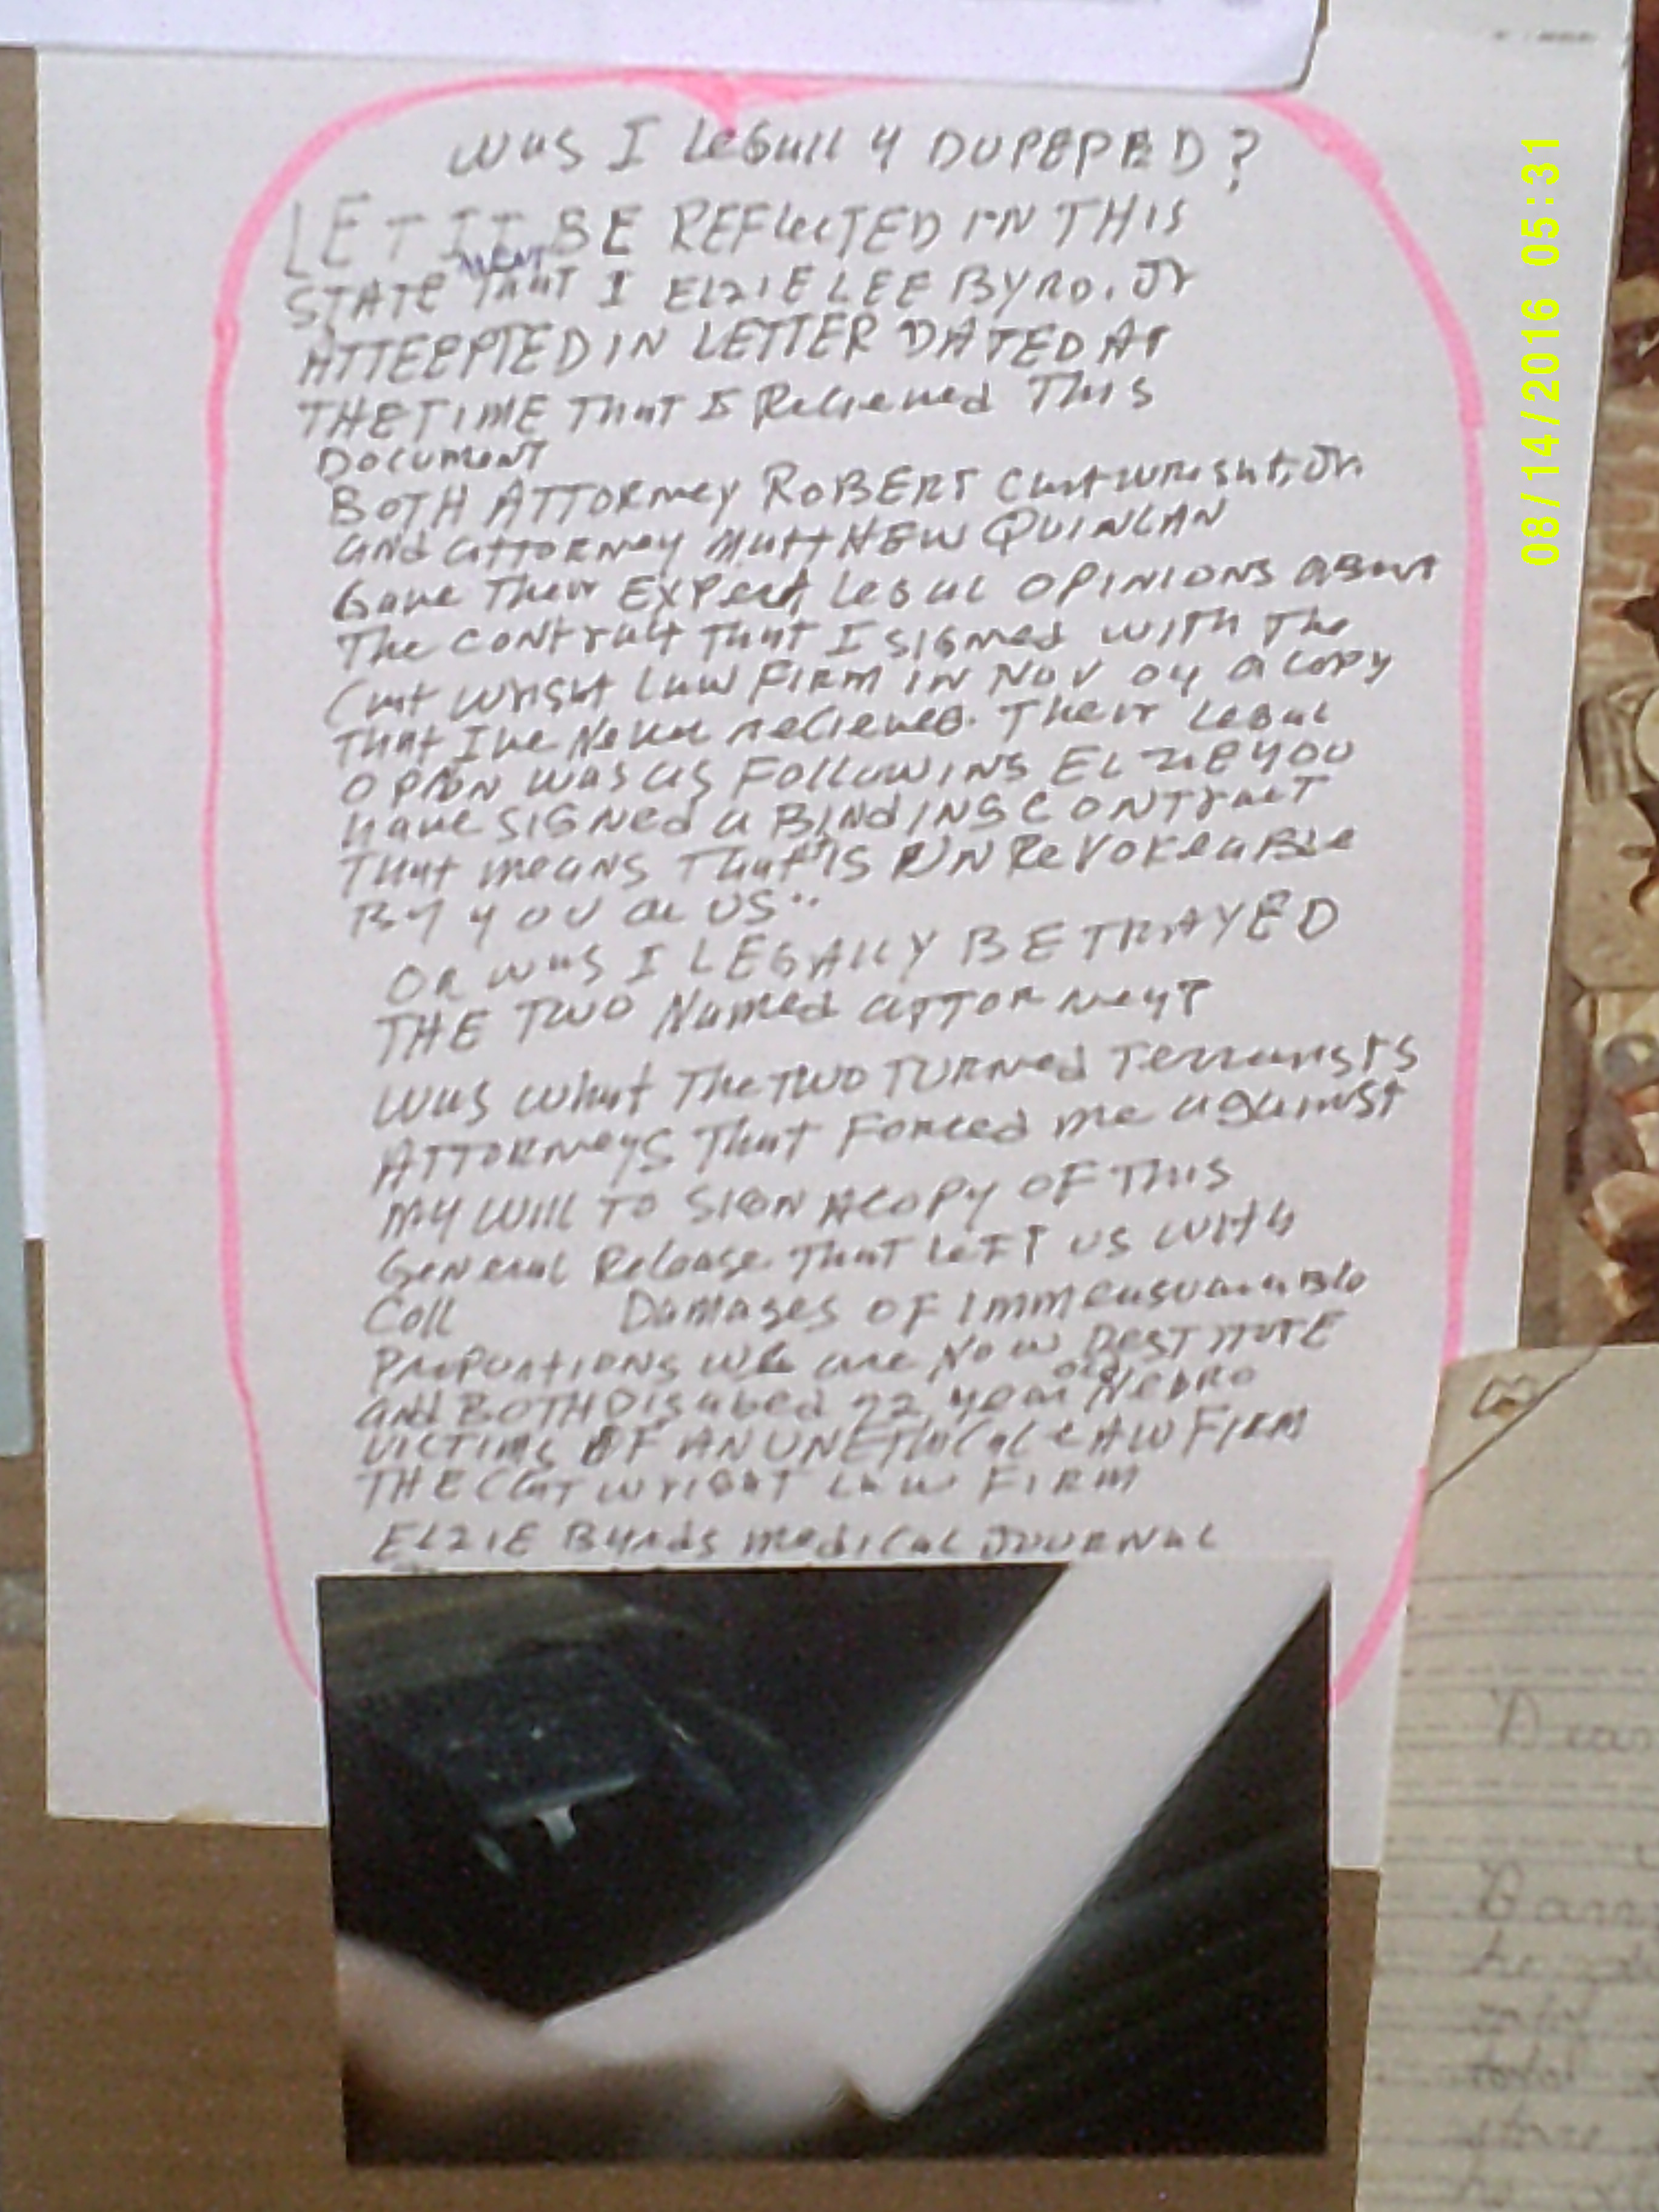 WAS I LEGALLY DUPEPED?
LET IT BE REFLECTED IN THIS
STATEMENT THAT I ELZIE LEE BYRD, Jr
ATTEEPTED IN LETTER DATED AT
THE TIME THAT I Recieved This
Document
BOTH ATTORNEY ROBERT CartWRIGHT, Jr.
and attorney MATTHEW QUINLAN
Gave Their Expert Legal OPINIONS About
The CONTRACT THAT I SIGNED WITH The
Cart Wright Law FIRM IN NOV 04 a copy
That I've Never recieved. Their Legal
was as FOLLOWING ELZIE YOU
have SIGNed a BINDING CONTRACT
That means That IS UNREVOKEABLE
By YOU OR US"
OR WAS I LEGALLY BETRAYED
THE TWO Named ATTORNEY?
WAS What The TWO TURNed Terrorists
ATTORNEYS That Forced me against
MY WILL TO SIGN A COPY OF THIS
General Release That LEFT US With
Coll Damages OF Immeasuarable
Proportions We are NOW DESTITUTE
and BOTH Disabled 72 year old Negro
VICTIMS OF AN UNETHICAL LAW FIRM
THE CART WRIGHT LAW FIRM
ELZIE Byrds Medical JOURNAL
08/14/2016 05:31
Dear